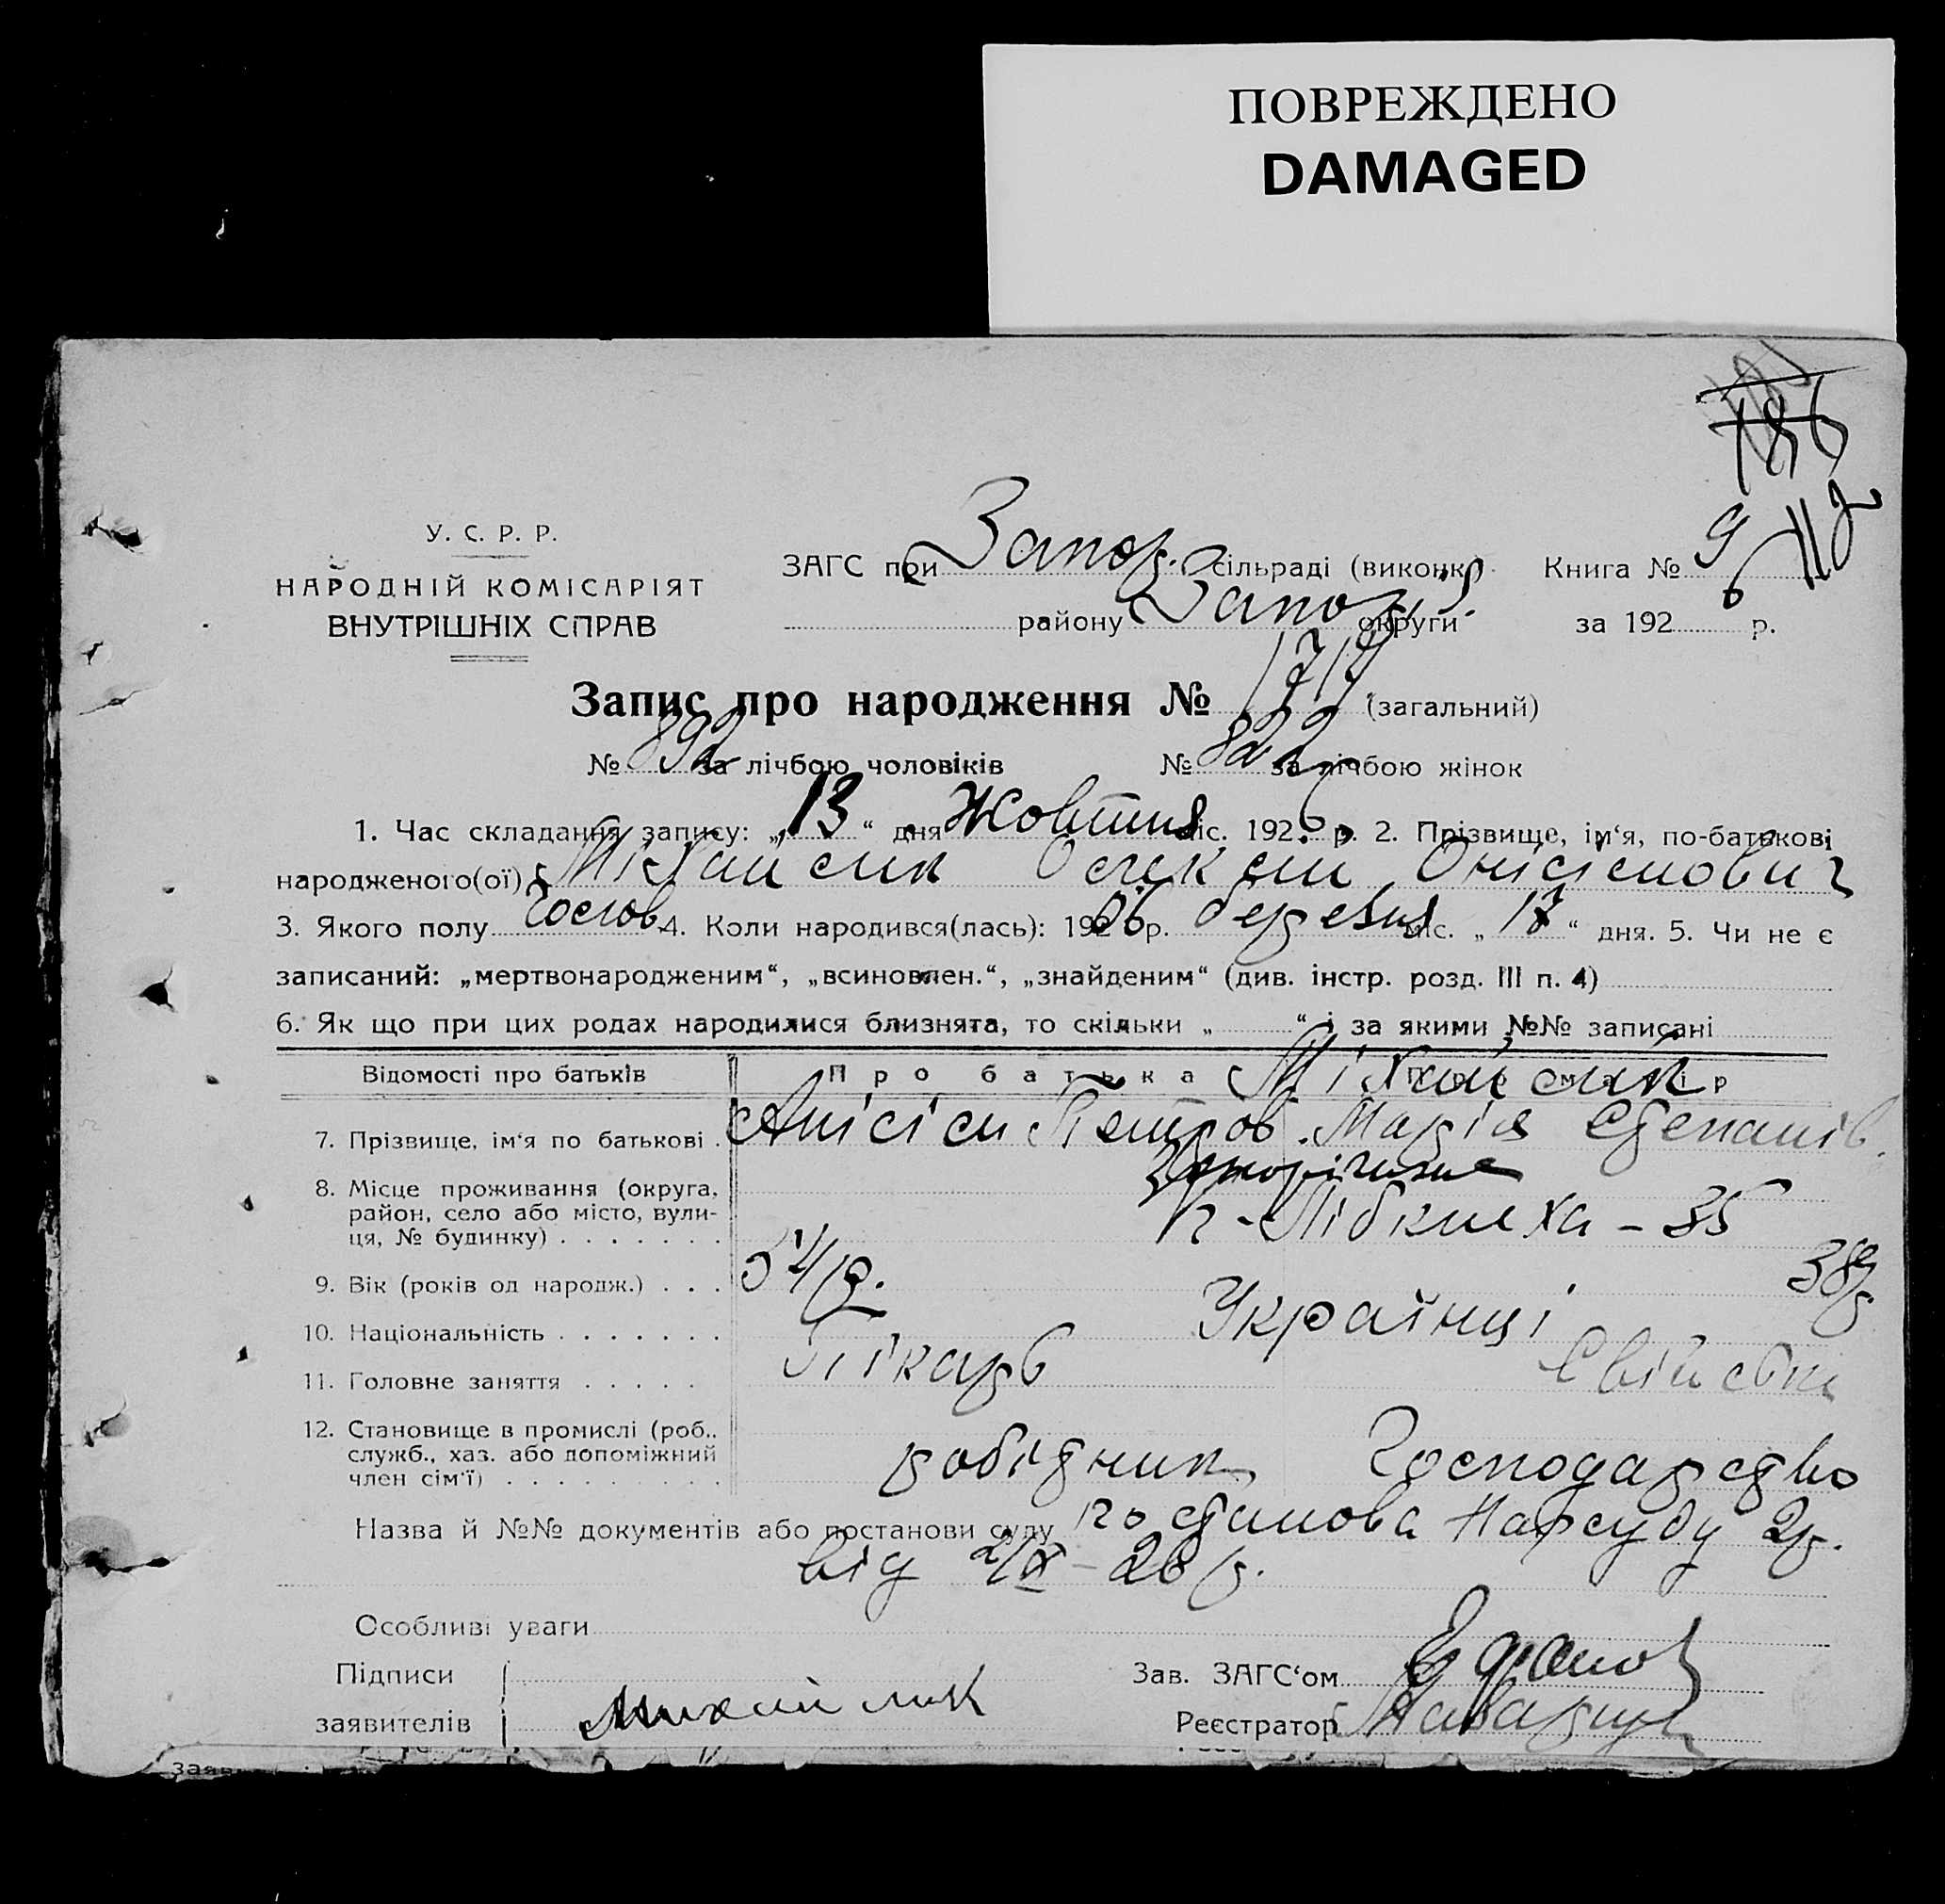 ПОВРЕЖДЕНО
DAMAGED
186
112
У. С. Р. Р.
НАРОДНІЙ КОМІСАРІЯТ
ВНУТРІШНІХ СПРАВ
ЗАГС при Запор. сільраді (виконк.) Книга № 9
району Запор. округи за 1926 р.
Запис про народження № 1714 (загальний)
№ 892 за лічбою чоловіків № 822 за лічбою жінок
1. Час складання запису: „13“ дня Жовтня міс. 1926 р. 2. Прізвище, ім‘я, по-батькові
народженого(ої) Міхайслик Олексій Онісімович
3. Якого полу Чолов. 4. Коли народився(лась): 1906 р. березня міс. „17“ дня. 5. Чи не є
записаний: „мертвонародженим“, „всиновлен.“, „знайденим“ (див. інстр. розд. III п. 4)
6. Як що при цих родах народилися близнята, то скільки „ “ і за якими №№ записані
Відомості про батьків Про батька Про матір
Міхайслик
7. Прізвище, ім‘я по батькові Анісім Петров. Марія Степанів.
8. Місце проживання (округа, район, село або місто, вулиця, № будинку) Запоріжжя
п-Лібкнехта - 35
9. Вік (років од народж.) 54 р. 38 р
10. Національність Українці
11. Головне заняття Пікарь Свійське
12. Становище в промислі (роб., служб., хаз. або допоміжний член сім‘ї) робітник Господарство
Назва й №№ документів або постанови суду постанова Нарсуду 2р.
від 2/IX-26 р.
Особливі уваги
Підписи
заявителів
Зав. ЗАГС‘ом
Реєстратор